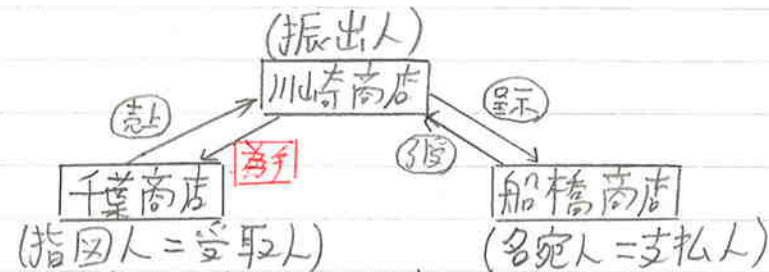 (振出人)
川崎商店
売上
呈示
為手
引受
千葉商店
船橋商店
(指図人=受取人)
(名宛人=支払人)